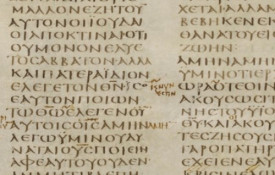 ΜΑΛΛΟΝΕΖΗΤΟΥ
ΑΥΤΟΝΟΙΪΟΥΔΑΙ
ΟΙΑΠΟΚΤΙΝΑΙΟΤΙ
ΟΥΜΟΝΟΝΕΛΥΕ
ΤΟϹΑΒΒΑΤΟΝΑΛΛΑ
ΚΑΙΠΑΤΕΡΑΪΔΙΟΝ
ΕΛΕΓΕΤΟΝΘΝΪϹΟ
ΕΑΥΤΟΝΠΟΙΩΝ
ΤΩΘΩ ΕΛΕΓΕΝΟΥ
ΑΥΤΟΙϹ ΑΜΗΝΑΜΗ
ΛΕΓΩΫΜΙΝΟΥΔΥ
ΝΑΤΑΙΟΥϹΠΟΙΕΙΝ
ΑΦΕΑΥΤΟΥΟΥΔΕΝ
ΧΕΤΑΙΑΛΛΑΜΕ
ΒΕΒΗΚΕΝΕΚΤΟΥ
ΘΑΝΑΤΟΥΕΙϹΤΗ
ΖΩΗΝ
ΑΜΗΝΑΜΗΝ
ΥΜΙΝΟΤΙΕΡ
ΩΡΑΟΤΕΟΙΝΕ
ΑΚΟΥϹΩϹΙΝ
ΘΥΚΑΙΑΚΟΥ
ΤΕϹΖΗϹΟΥϹΙ
ΓΑΡΟΠΑΤΗΡ
ΕΧΕΙΕΝΕΑΥ